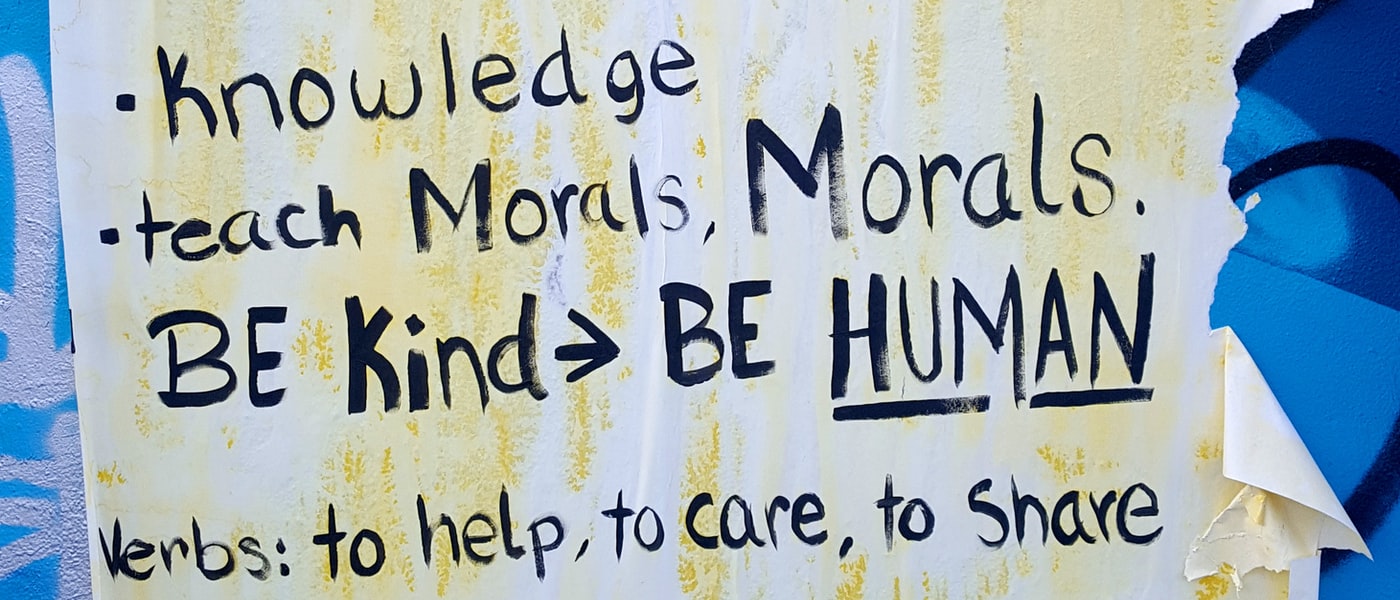 · Knowledge
· teach Morals, Morals.
BE Kind → BE HUMAN
Verbs: to help, to care, to Share